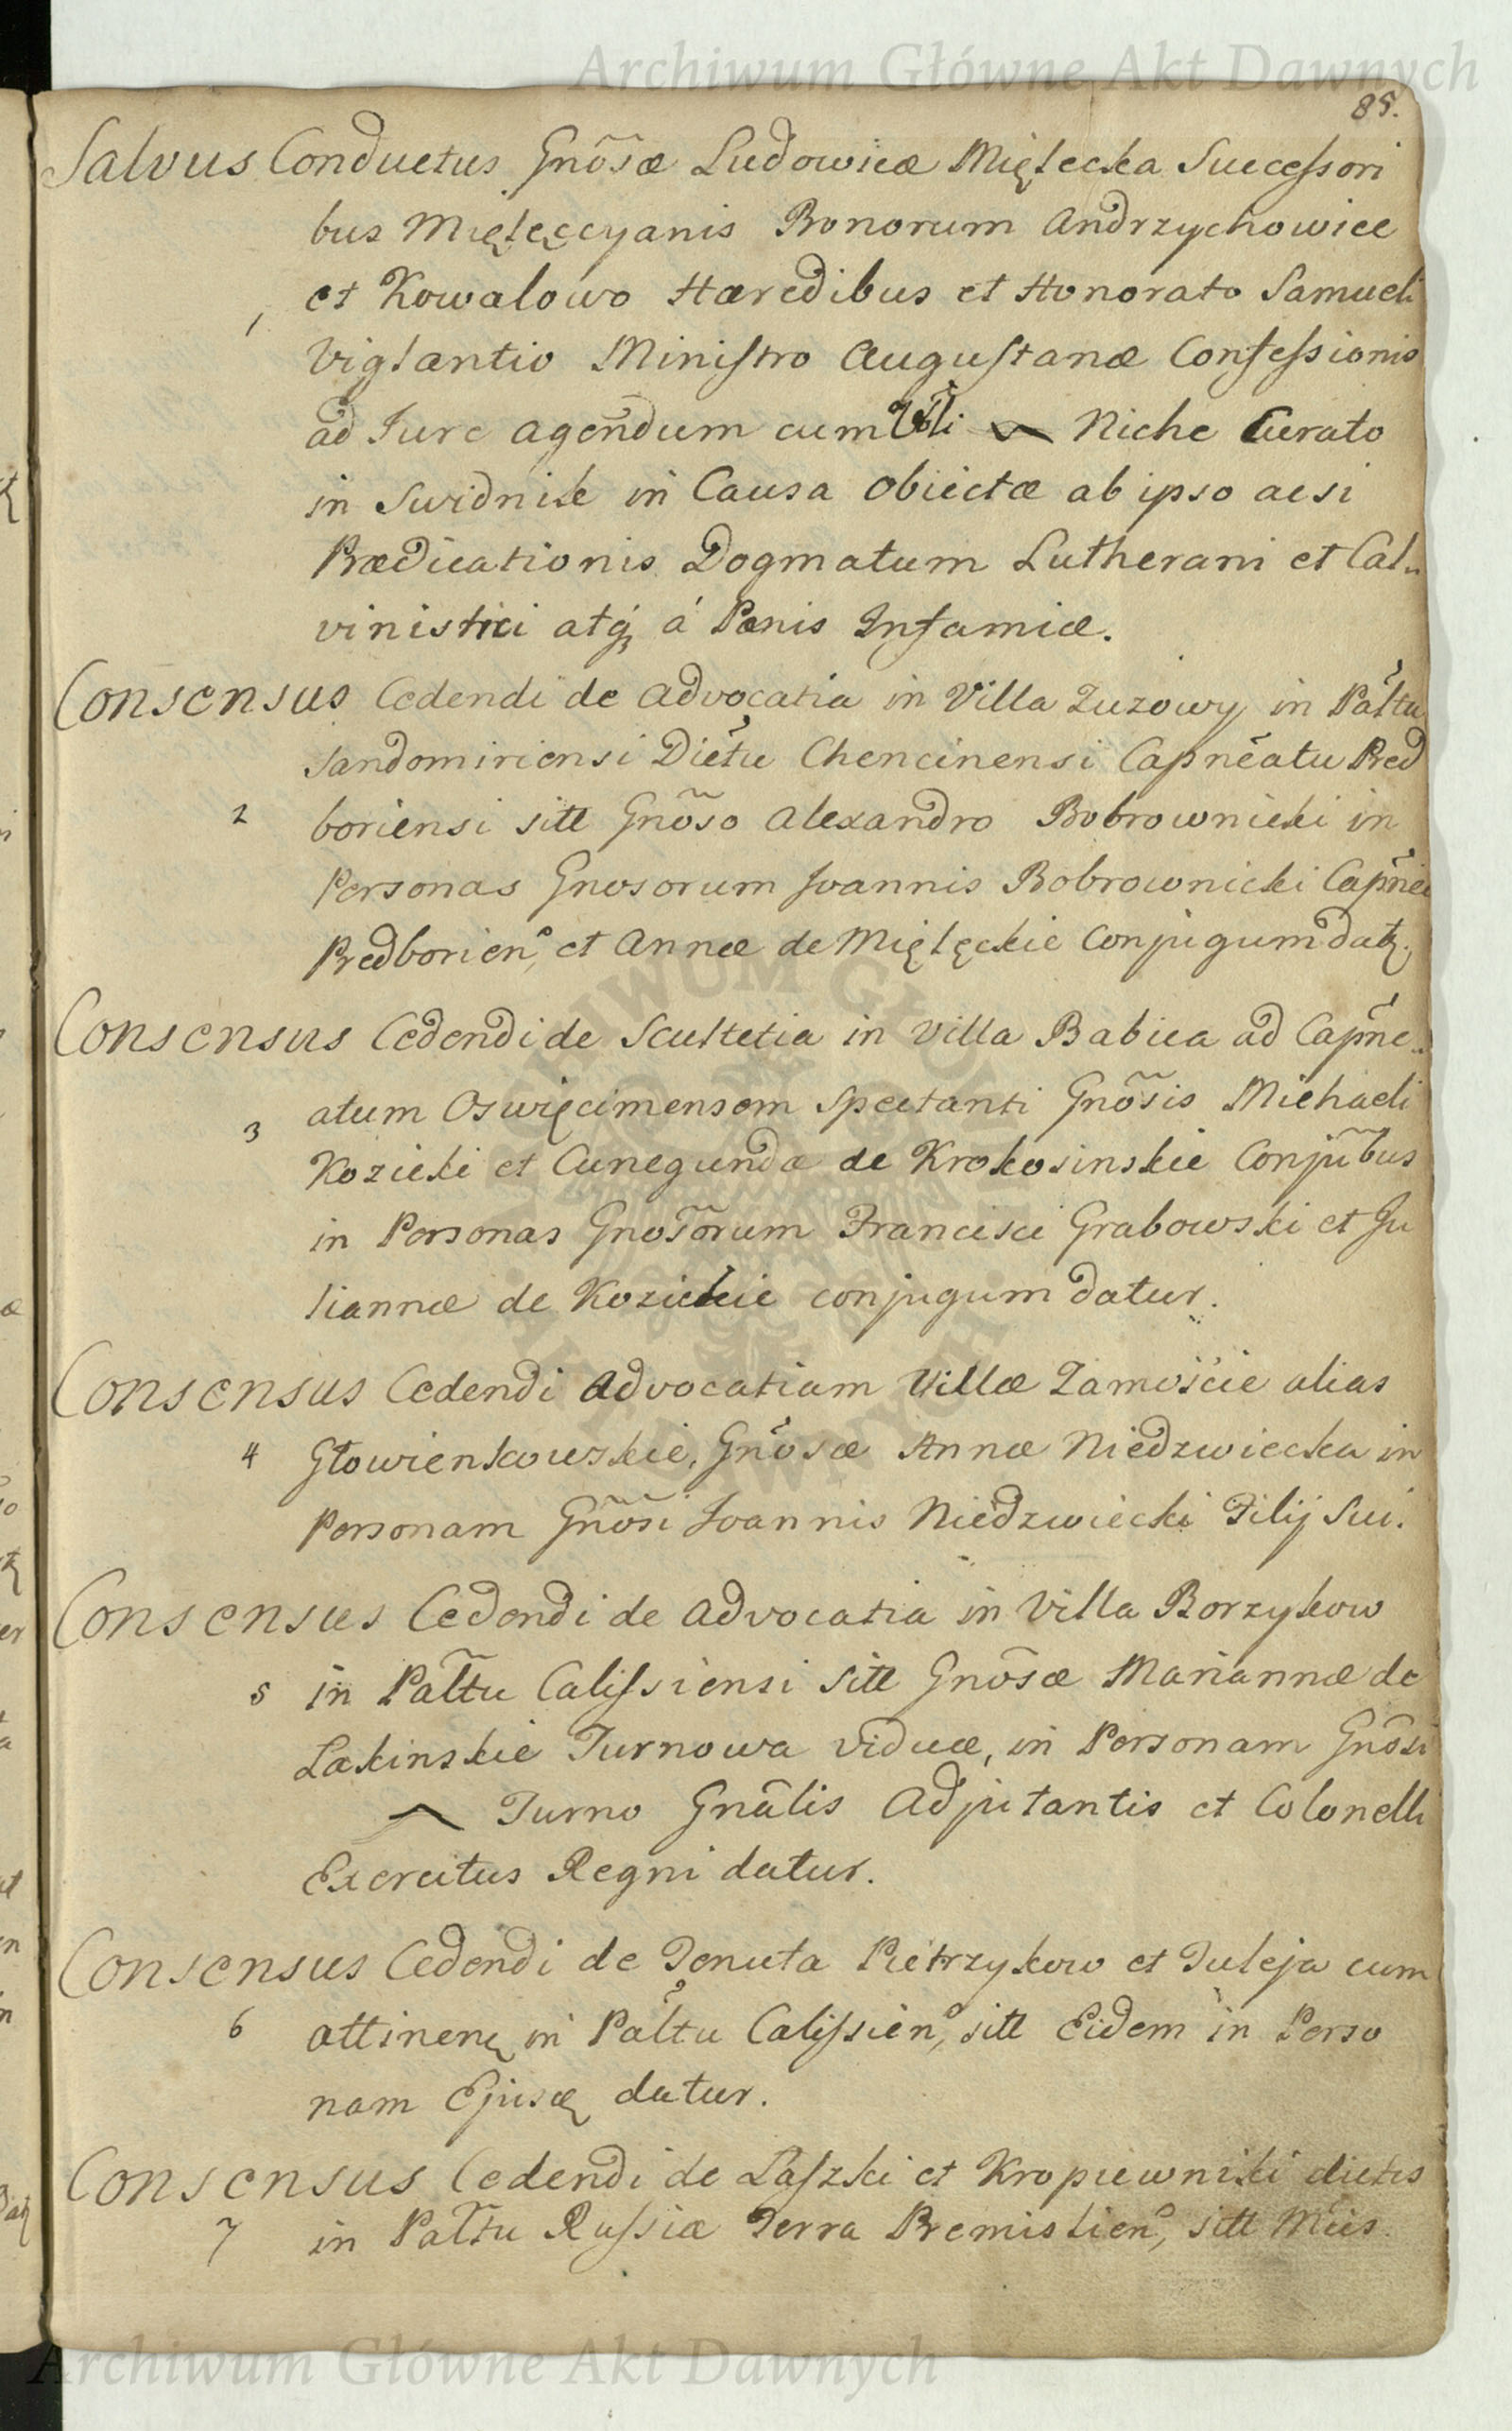 Archiwum Główne Akt Dawnych
85.
Salvus Conductus Gnõsæ Ludowicæ Mięlecka Successori
bus Mięlęccyanis Bonorum Andrzychowice
et Kowalowo Hæredibus et Honorato Samueli
1
Viglantio Ministro Augustanæ Confessionis
ad Jure agendum cum Niche Curato
in Swidnik in Causa obiectæ ab ipso acsi
Prædicationis Dogmatum Lutherani et Cal„
vinistici atq́ á Pænis Infamiæ.
Consensus Cedendi de Advocatia in Villa Zuzowy in Pałtu
Sandomiriensi Dictu Chencinensi Capnẽatu Pred
2 boriensi sitt Gnõso Alexandro Bobrownicki in
Personas Gnosorum Joannis Bobrownicki Capñei
Predborien, et Annæ de Mięlęckie Conjugum datz.
Consensus Cedendi de Scultetia in Villa Babica ad Capñe„
atum Oswięcimensem Spectanti Gnõsis Michaeli
3
Kozicki et Cunegundæ de Krokosinskie Conjũbus
in Personas Gnosõrum Francisci Grabowski et Ju
liannæ de Kozickie conjugum datur.
Consensus Cedendi Advocatiam Villæ Zamoście alias
4 Głowienkowskie, Gnõsæ Annæ Niedzwiecka in
Personam Gnõsi Joannis Niedzwiecki Filij Sui.
Consensus Cedendi de Advocatia in Villa Borzykow
5 in Pałtu Calissiensi Sitt Gnõsæ Mariannæ de
Łakinskie Turnowa Viduæ, in Personam Gnõsi
Turno Gnãlis Adjutantis et Colonelli
Exercitus Regni datur.
Consensus Cedendi de Tenuta Pietrzykow et Tuleja cum
6 attinenę in Pałtu Calissien, sitt Eidem in Perso
nam Ejusę datur.
Consensus Cedendi de Laszki et Kropiewniki dictis
7 in Pałtu Russiæ Terra Premislien, sitt Mcis
Archiwum Główne Akt Dawnych